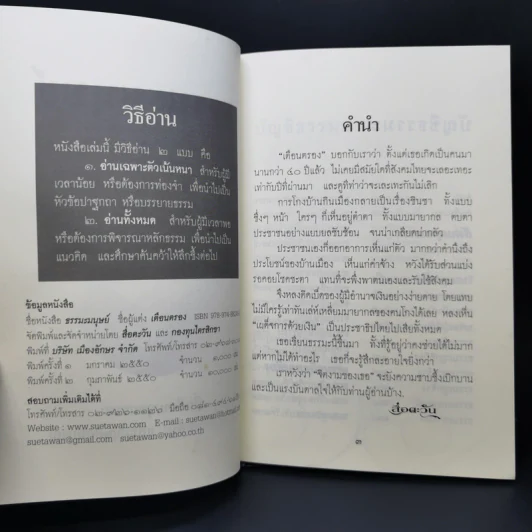 วิธีอ่าน
หนังสือเล่มนี้ มีวิธีอ่าน ๒ แบบ คือ
๑. อ่านเฉพาะตัวเน้นหนา สำหรับผู้มี
เวลาน้อย หรือต้องการท่องจำ เพื่อนำไปเป็น
หัวข้อปาฐกถา หรือบรรยายธรรม
๒. อ่านทั้งหมด สำหรับผู้มีเวลาพอ
หรือต้องการพิจารณาหลักธรรม เพื่อนำไปเป็น
แนวคิด และศึกษาค้นคว้าให้ลึกซึ้งต่อไป
ข้อมูลหนังสือ
ชื่อหนังสือ ธรรมะมนุษย์ ชื่อผู้แต่ง เตือนตรอง ISBN
จัดพิมพ์และจัดจำหน่ายโดย สื่อตะวัน และ กองทุนไตรสิกขา
พิมพ์ที่ บริษัท เมืองอักษร จำกัด โทรศัพท์/โทรสาร
พิมพ์ครั้งที่ ๑ มกราคม ๒๕๕๐ จำนวน
พิมพ์ครั้งที่ ๒ กุมภาพันธ์ ๒๕๕๐ จำนวน
สอบถามเพิ่มเติมได้ที่
โทรศัพท์/โทรสาร มือถือ
Website : www.suetawan.com E-mail :
suetawan@gmail.com suetawan@yahoo.co.th
คำนำ
"เตือนตรอง" บอกกับเราว่า ตั้งแต่เธอเกิดเป็นคนมา
นานกว่า ๔๐ ปีแล้ว ไม่เคยมีสมัยใดที่สังคมไทยจะเละเทอะ
เท่ากับปีที่ผ่านมา และดูทีท่าว่าจะเละเทะกันไม่เลิก
การโกงบ้านกินเมืองกลายเป็นเรื่องชินชา ทั้งแบบ
ซึ่งๆ หน้า ใครๆ ก็เห็นอยู่คำตา ทั้งแบบมายากล ตบตา
ประชาชนอย่างแบบยลซับซ้อน จนน่าเกลียดน่ากลัว
ประชาชนเองก็ออกอาการเห็นแก่ตัว มากกว่าคำนึงถึง
ประโยชน์ของบ้านเมือง เห็นแก่ค่าจ้าง หวังได้รับส่วนแบ่ง
รอคอยโชคชะตา แทนที่จะพึ่งพาตนเองและรับใช้สังคม
จึงหลงคิดเบ็ดของผู้มีอำนาจเงินอย่างง่ายดาย โดยแทบ
ไม่มีใครรู้เท่าทันเล่ห์เหลี่ยมมายากลของคนโกงได้เลย หลงเห็น
"เผด็จการด้วยเงิน" เป็นประชาธิปไตยไปเสียทั้งหมด
เธอเขียนธรรมะนี้ขึ้นมา ทั้งที่รู้อยู่ว่าคงช่วยได้ไม่มาก
แต่หากไม่ได้ทำอะไร เธอก็จะรู้สึกละอายใจยิ่งกว่า
เราหวังว่า "จิตงามของเธอ" จะยังความซาบซึ้งเบิกบาน
และเป็นแรงบันดาลใจให้กับท่านผู้อ่านบ้าง.
สื่อตะวัน
๓